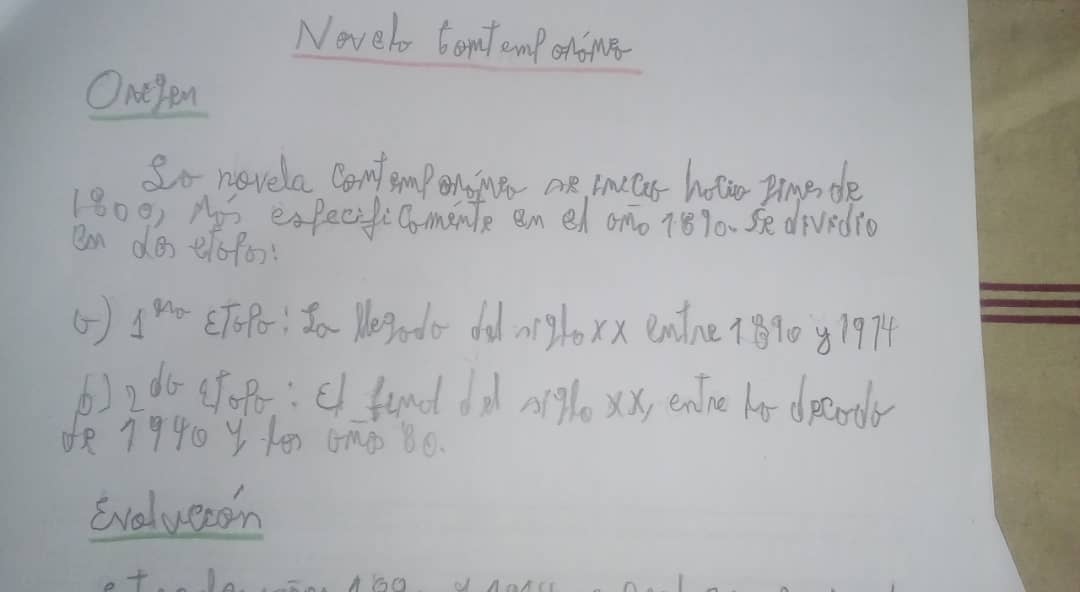 Novela Contemporánea
Origen
La novela contemporánea se inicia hacia fines de
1800, más específicamente en el año 1890. Se dividio
en dos etapas:
a) 1ra Etapa: La llegada del siglo XX entre 1890 y 1914
b) 2da Etapa: El final del siglo XX, entre la decada
de 1940 y los año 80.
Evolución